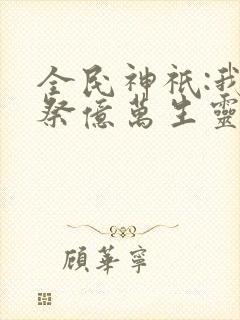 全民神祇:我
祭億萬生靈
顧華寧